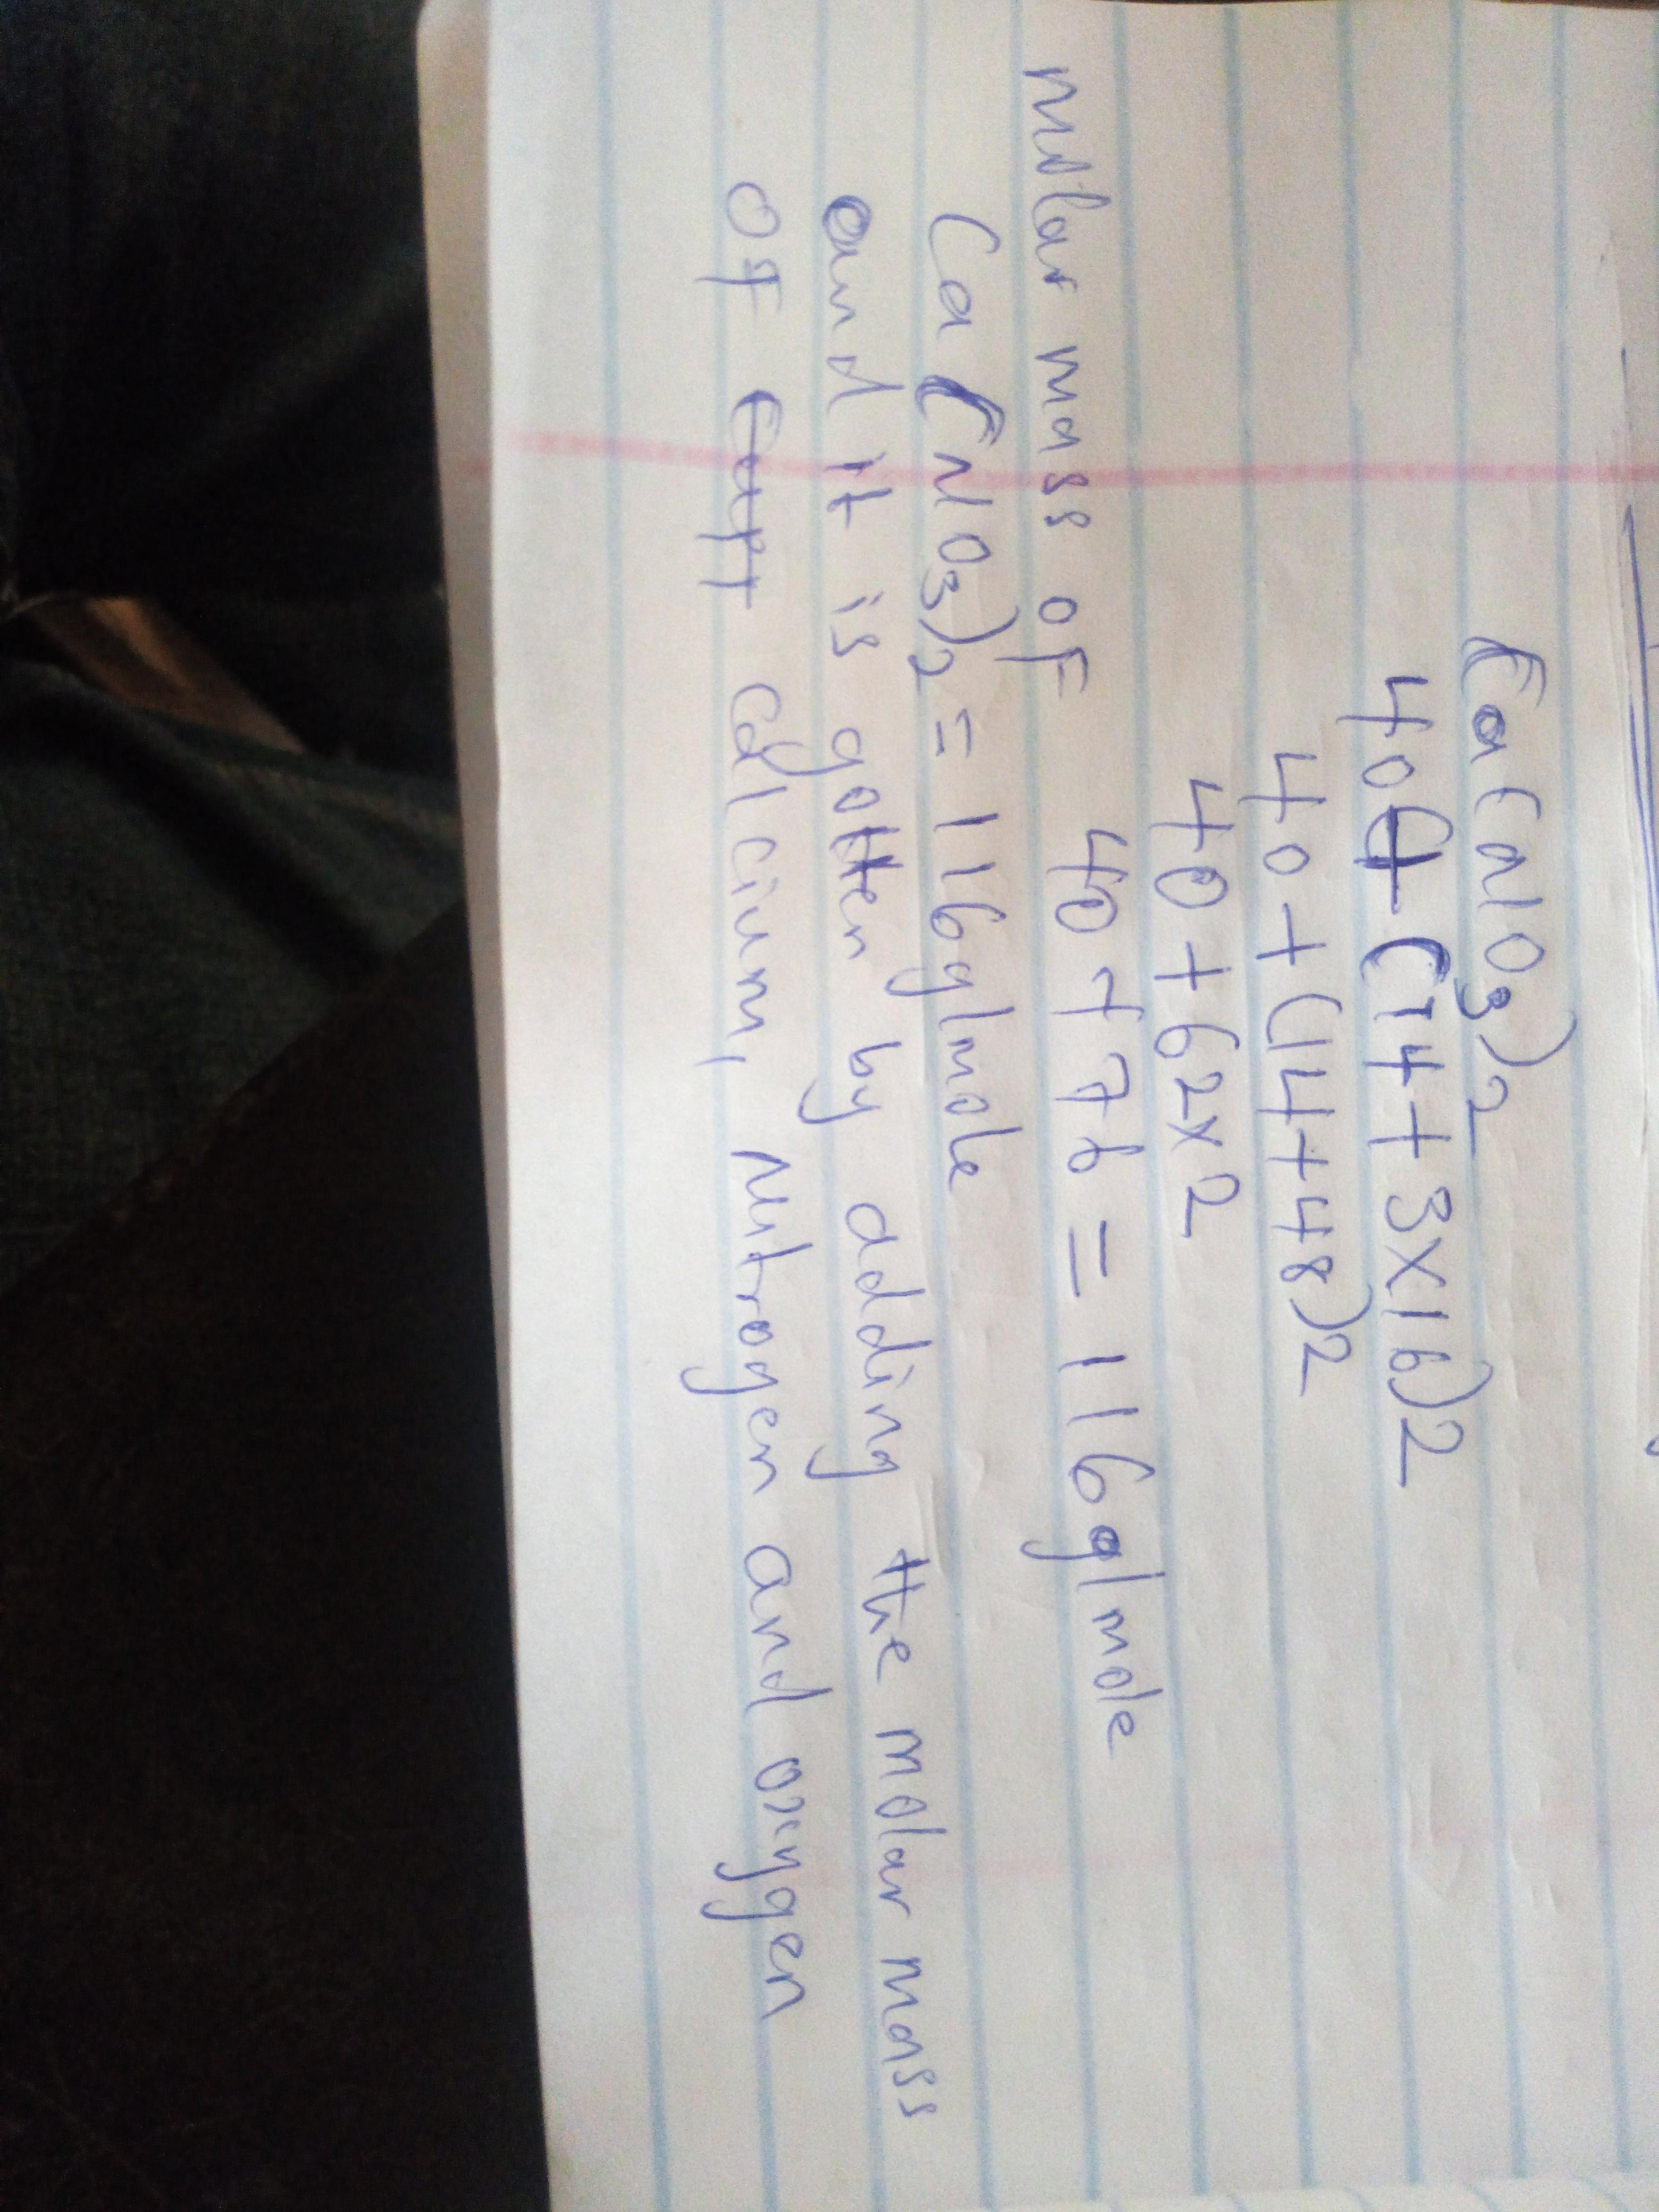 Ca(NO3)2
40+(14+3x16)2
40+(14+48)2
40+62x2
40+76=116g/mole
molar mass of
Ca(NO3)2=116g/mole
and it is gotten by adding the molar mass
of calcium, nitrogen and oxygen